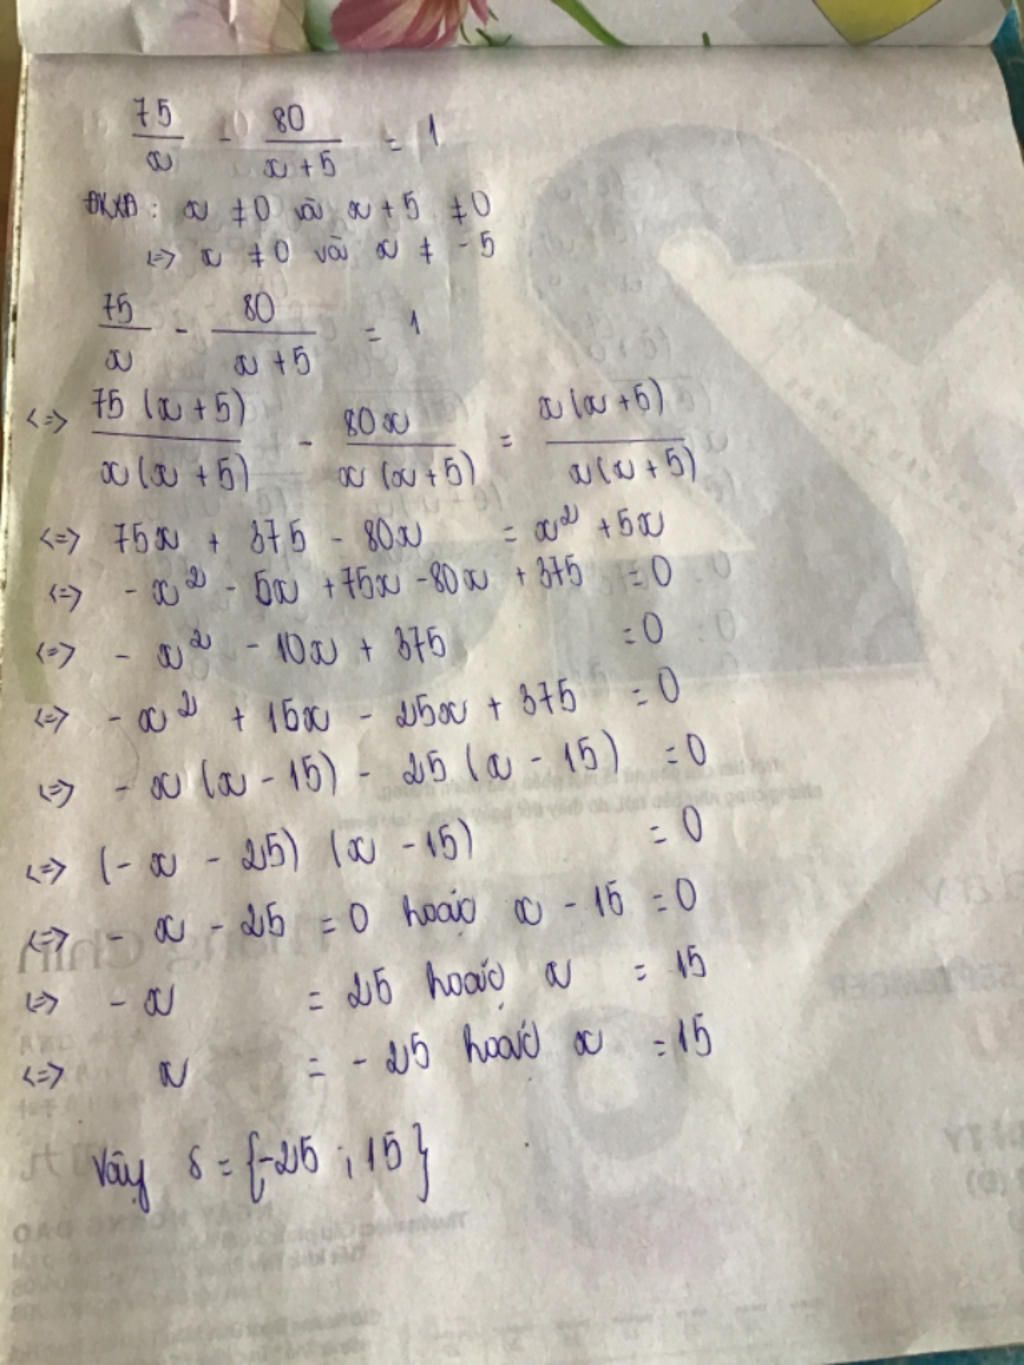 75/x - 80/(x+5) = 1
ĐKXĐ: x ≠ 0 và x + 5 ≠ 0
<=> x ≠ 0 và x ≠ -5
75/x - 80/(x+5) = 1
<=> 75(x+5)/x(x+5) - 80x/x(x+5) = x(x+5)/x(x+5)
<=> 75x + 375 - 80x = x² + 5x
<=> -x² - 5x + 75x - 80x + 375 = 0
<=> -x² - 10x + 375 = 0
<=> -x² + 15x - 25x + 375 = 0
<=> -x(x - 15) - 25(x - 15) = 0
<=> (-x - 25)(x - 15) = 0
<=> -x - 25 = 0 hoặc x - 15 = 0
<=> -x = 25 hoặc x = 15
<=> x = -25 hoặc x = 15
Vậy S = {-25; 15}